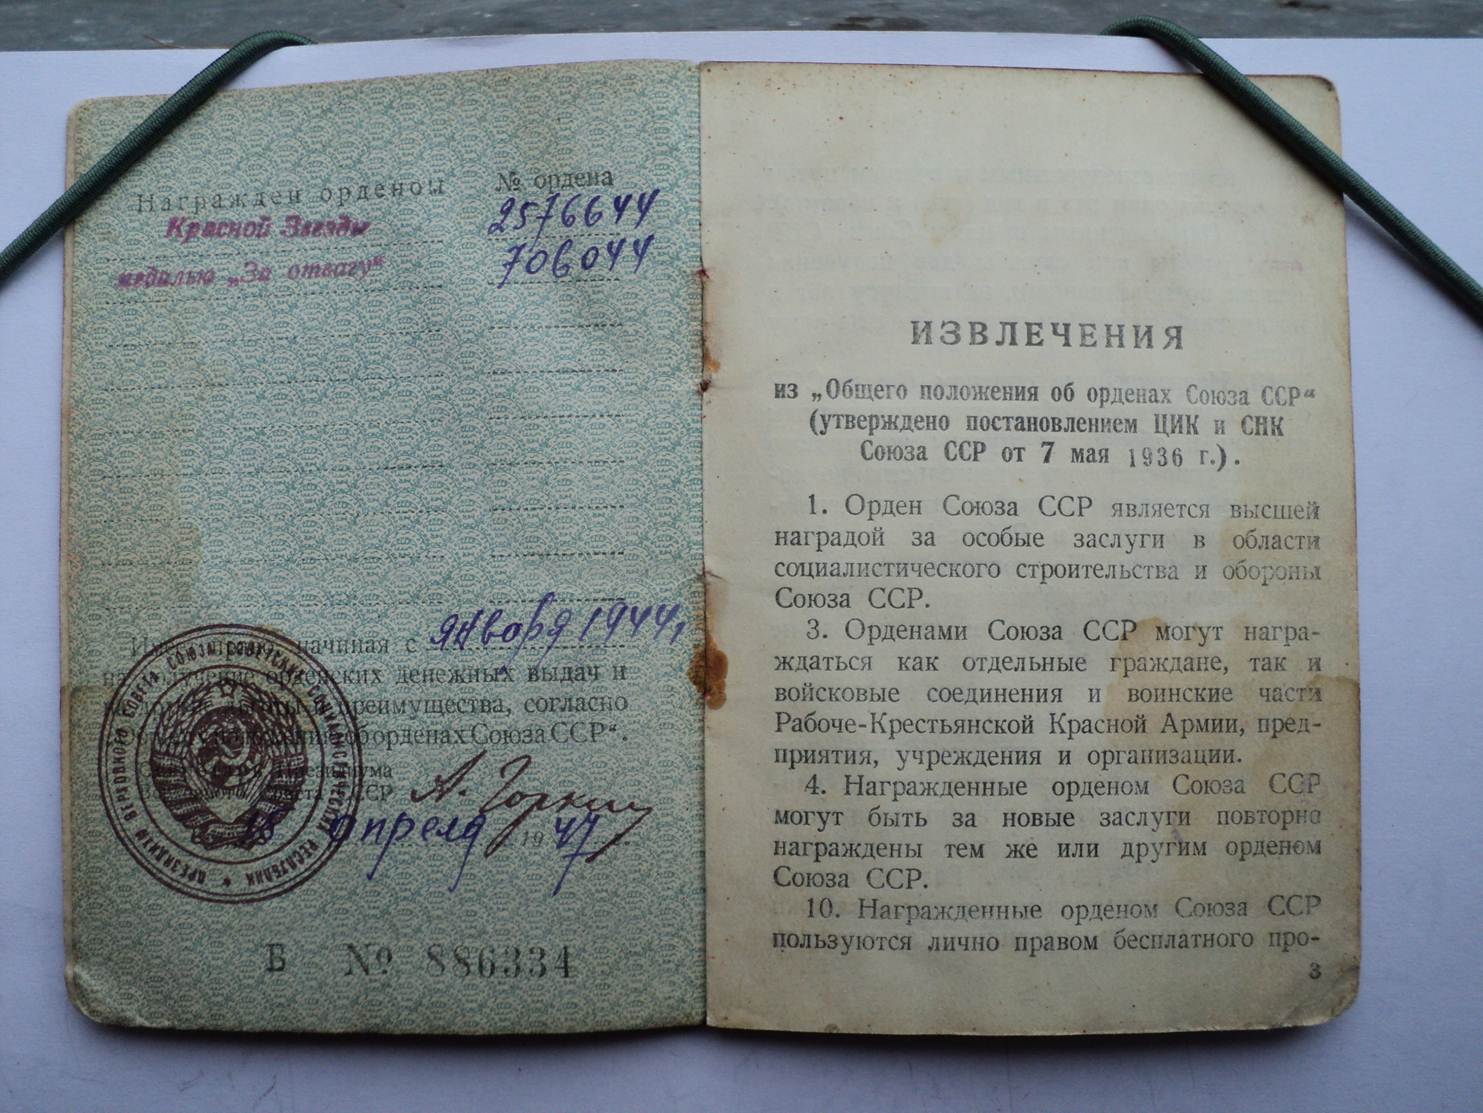 Награжден орденом
№ ордена
Красной Звезды
2576644
медалью „За отвагу“
706044
начиная с января 1944
на получение орденских денежных выдач и
преимущества, согласно
об орденах Союза ССР“.
А. Горкин
18 апреля 1947
ПРЕЗИДИУМ ВЕРХОВНОГО СОВЕТА СОЮЗА СОВЕТСКИХ СОЦИАЛИСТИЧЕСКИХ РЕСПУБЛИК
Б № 886334
ИЗВЛЕЧЕНИЯ
из „Общего положения об орденах Союза ССР“
(утверждено постановлением ЦИК и СНК
Союза ССР от 7 мая 1936 г.).
1. Орден Союза ССР является высшей
наградой за особые заслуги в области
социалистического строительства и обороны
Союза ССР.
3. Орденами Союза ССР могут награ-
ждаться как отдельные граждане, так и
войсковые соединения и воинские части
Рабоче-Крестьянской Красной Армии, пред-
приятия, учреждения и организации.
4. Награжденные орденом Союза ССР
могут быть за новые заслуги повторно
награждены тем же или другим орденом
Союза ССР.
10. Награжденные орденом Союза ССР
пользуются лично правом бесплатного про-
3